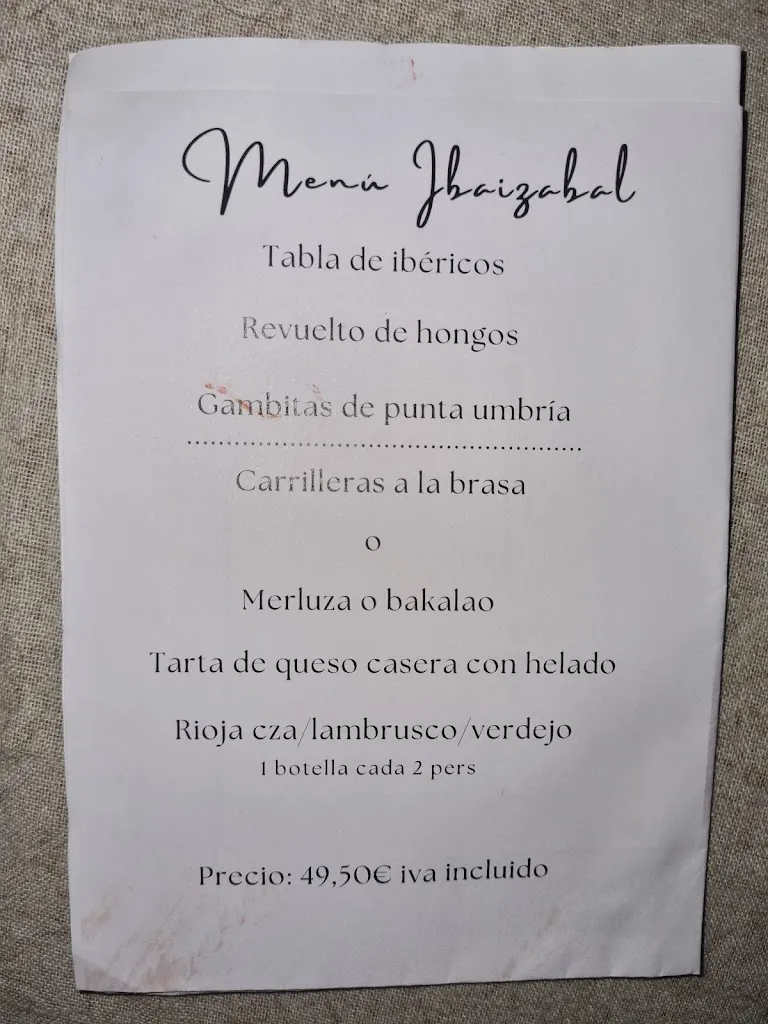 Menú Ibaizabal
Tabla de ibéricos
Revuelto de hongos
Gambitas de punta umbría
Carrilleras a la brasa
o
Merluza o bakalao
Tarta de queso casera con helado
Rioja cza/lambrusco/verdejo
1 botella cada 2 pers
Precio: 49,50€ iva incluido